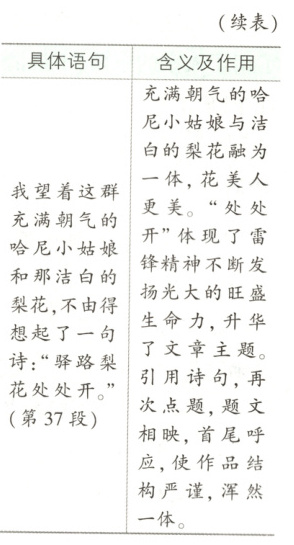 (续表)
具体语句
含义及作用
我望着这群
充满朝气的
哈尼小姑娘
和那洁白的
梨花,不由得
想起了一句
诗:“驿路梨
花处处开。”
(第 37 段)
充满朝气的哈
尼小姑娘与洁
白的梨花融为
一体,花美人
更美。“处处
开”体现了雷
锋精神不断发
扬光大的旺盛
生命力,升华
了文章主题。
引用诗句,再
次点题,题文
相映,首尾呼
应,使作品结
构严谨,浑然
一体。